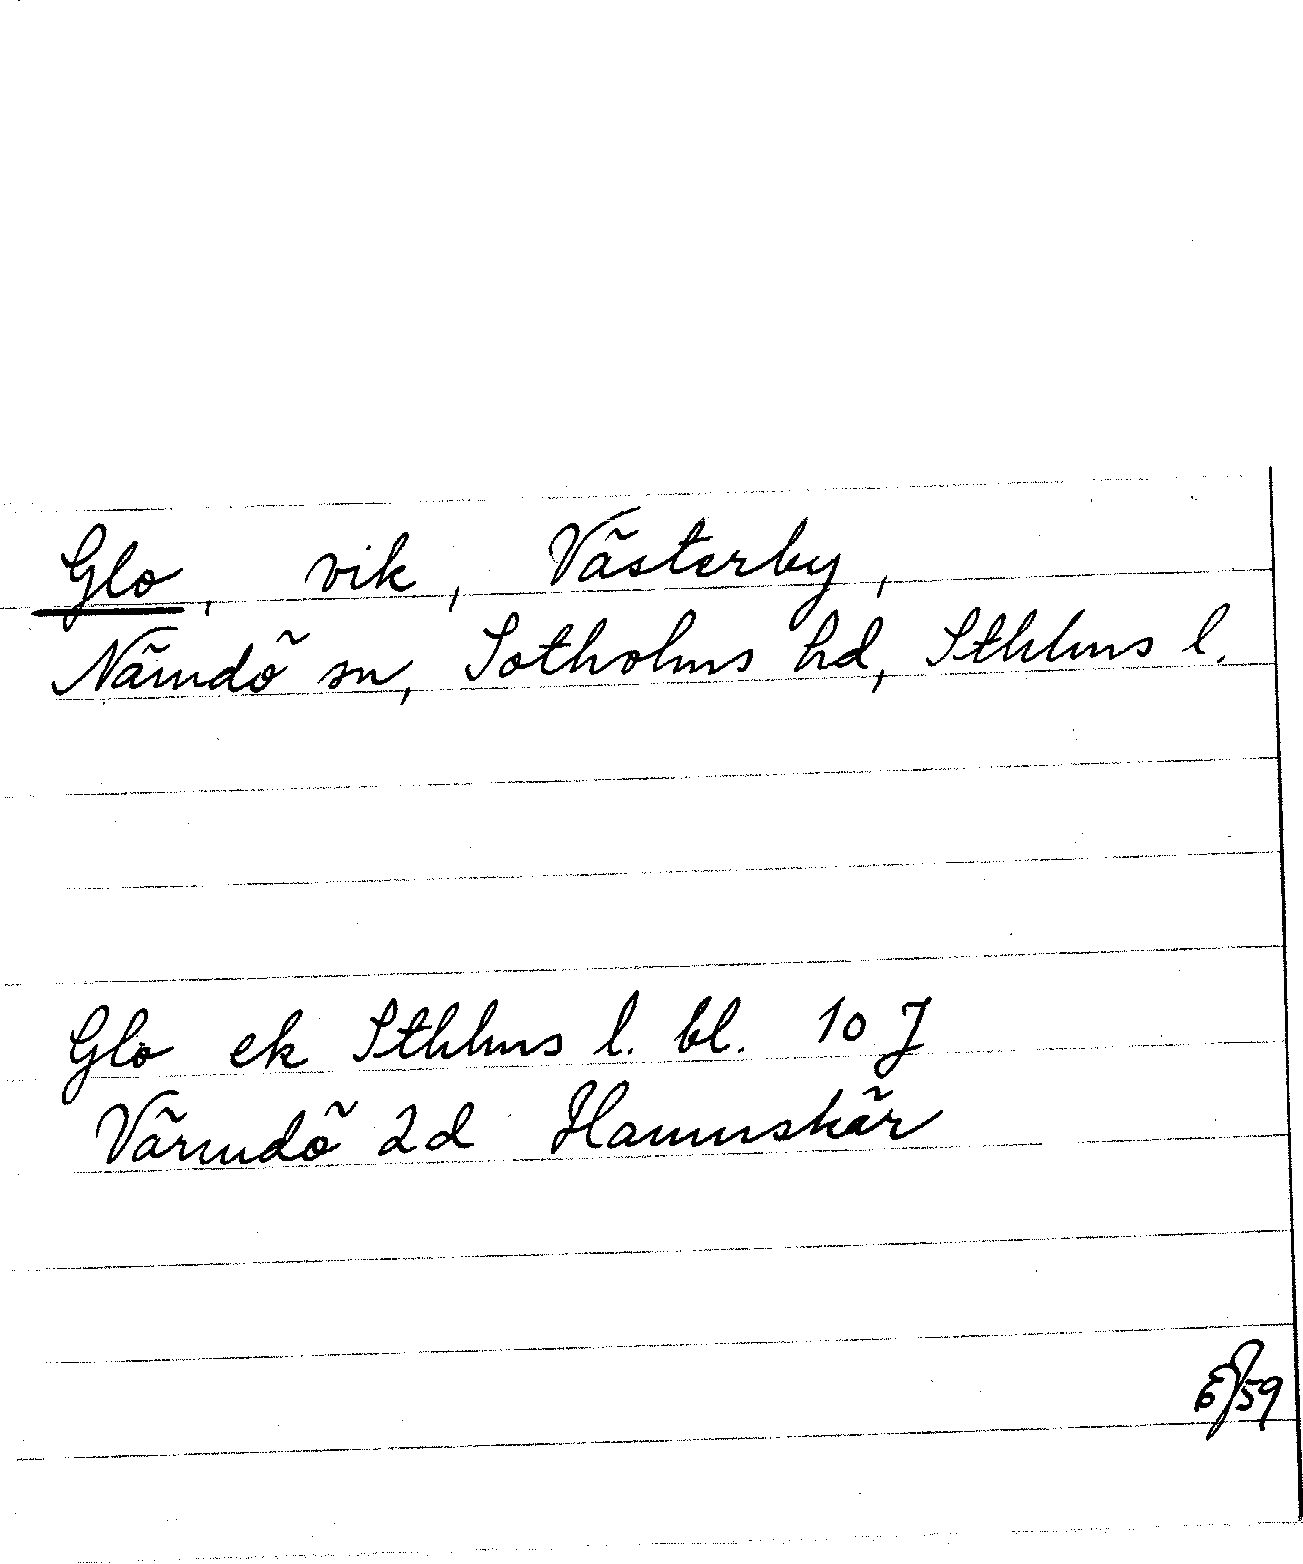 Glo, vik, Västerby,
Nämdö sn, Sotholms hd, Sthlms l.
Glo ek Sthlms l. bl. 10 J
Värmdö 2d Hamnskär
59